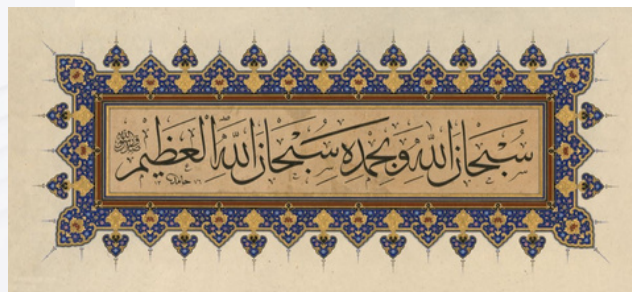 سُبْحَانَ اللَّهِ وَبِحَمْدِهِ سُبْحَانَ اللَّهِ الْعَظِيمِ